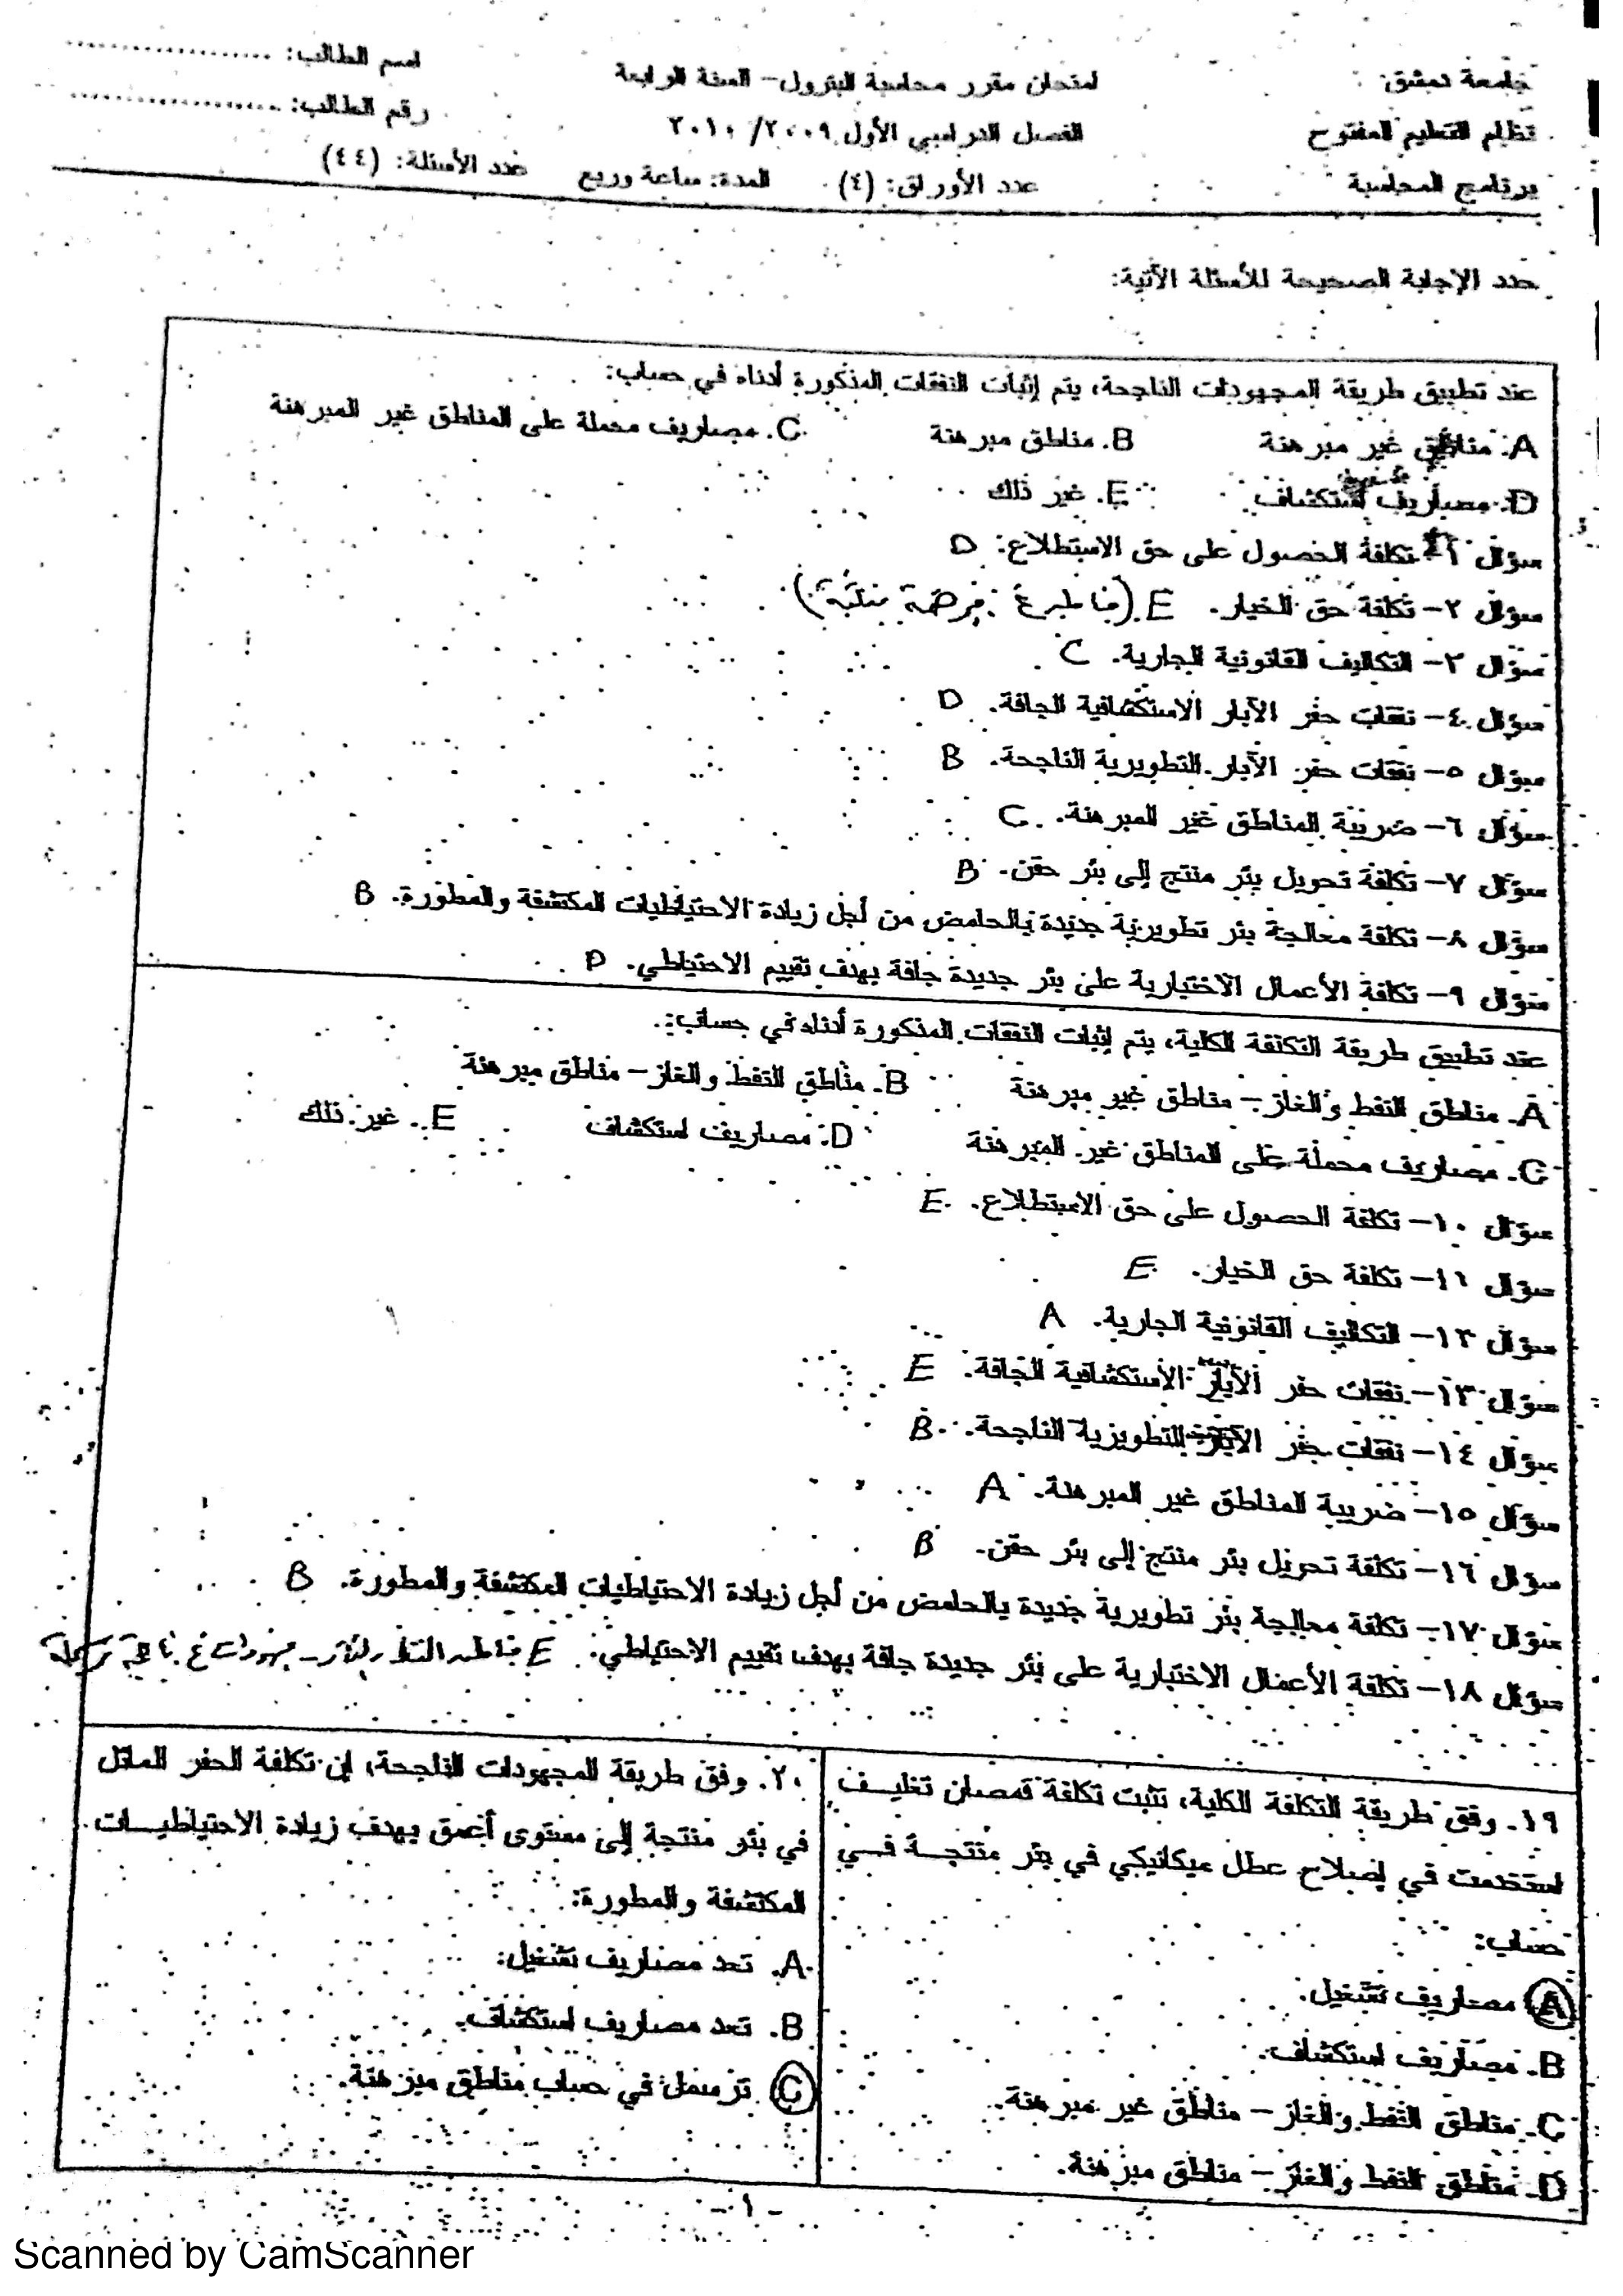 جامعة دمشق
امتحان مقرر محاسبة البترول- السنة الرابعة
اسم الطالب: ....................
نظام التعليم المفتوح
الفصل الدراسي الأول ٢٠٠٩/ ٢٠١٠
رقم الطالب: ....................
برنامج المحاسبة
عدد الأوراق: (٤)
المدة: ساعة وربع
عدد الأسئلة: (٤٤)
حدد الإجابة الصحيحة للأسئلة الآتية:
عند تطبيق طريقة المجهودات الناجحة، يتم إثبات النفقات المذكورة أدناه في حساب:
A. مناطق غير مبرهنة B. مناطق مبرهنة C. مصاريف محملة على المناطق غير المبرهنة
D. مصاريف استكشاف E. غير ذلك
سؤال ١- تكلفة الحصول على حق الاستطلاع: D
سؤال ٢- تكلفة حق الخيار. E
سؤال ٣- التكاليف القانونية الجارية. C
سؤال ٤- نفقات حفر الآبار الاستكشافية الجافة. D
سؤال ٥- نفقات حفر الآبار التطويرية الناجحة. B
سؤال ٦- ضريبة المناطق غير المبرهنة. C
سؤال ٧- تكلفة تحويل بئر منتج إلى بئر حقن. B
سؤال ٨- تكلفة معالجة بئر تطويرية جديدة بالحامض من أجل زيادة الاحتياطيات المكتشفة والمطورة. B
سؤال ٩- تكلفة الأعمال الاختبارية على بئر جديدة جافة بهدف تقييم الاحتياطي. D
عند تطبيق طريقة التكلفة الكلية، يتم إثبات النفقات المذكورة أدناه في حساب:
A. مناطق النفط والغاز- مناطق غير مبرهنة B. مناطق النفط والغاز- مناطق مبرهنة
C. مصاريف محملة على المناطق غير المبرهنة D. مصاريف استكشاف E. غير ذلك
سؤال ١٠- تكلفة الحصول على حق الاستطلاع. E
سؤال ١١- تكلفة حق الخيار. E
سؤال ١٢- التكاليف القانونية الجارية. A
سؤال ١٣- نفقات حفر الآبار الاستكشافية الجافة. E
سؤال ١٤- نفقات حفر الآبار التطويرية الناجحة. B
سؤال ١٥- ضريبة المناطق غير المبرهنة. A
سؤال ١٦- تكلفة تحويل بئر منتج إلى بئر حقن. B
سؤال ١٧- تكلفة معالجة بئر تطويرية جديدة بالحامض من أجل زيادة الاحتياطيات المكتشفة والمطورة. B
سؤال ١٨- تكلفة الأعمال الاختبارية على بئر جديدة جافة بهدف تقييم الاحتياطي. E مناطق النفط والغاز - مجهودات غ ناجحة
١٩. وفق طريقة التكلفة الكلية، تثبت تكلفة قمصان تغليف
استخدمت في إصلاح عطل ميكانيكي في بئر منتجة في
حساب:
A. مصاريف تشغيل.
B. مصاريف استكشاف.
C. مناطق النفط والغاز- مناطق غير مبرهنة.
D. مناطق النفط والغاز- مناطق مبرهنة.
٢٠. وفق طريقة المجهودات الناجحة، إن تكلفة الحفر المائل
في بئر منتجة إلى مستوى أعمق بهدف زيادة الاحتياطيات
المكتشفة والمطورة:
A. تعد مصاريف تشغيل.
B. تعد مصاريف استكشاف.
C. ترسمل في حساب مناطق مبرهنة.
-١-
Scanned by CamScanner